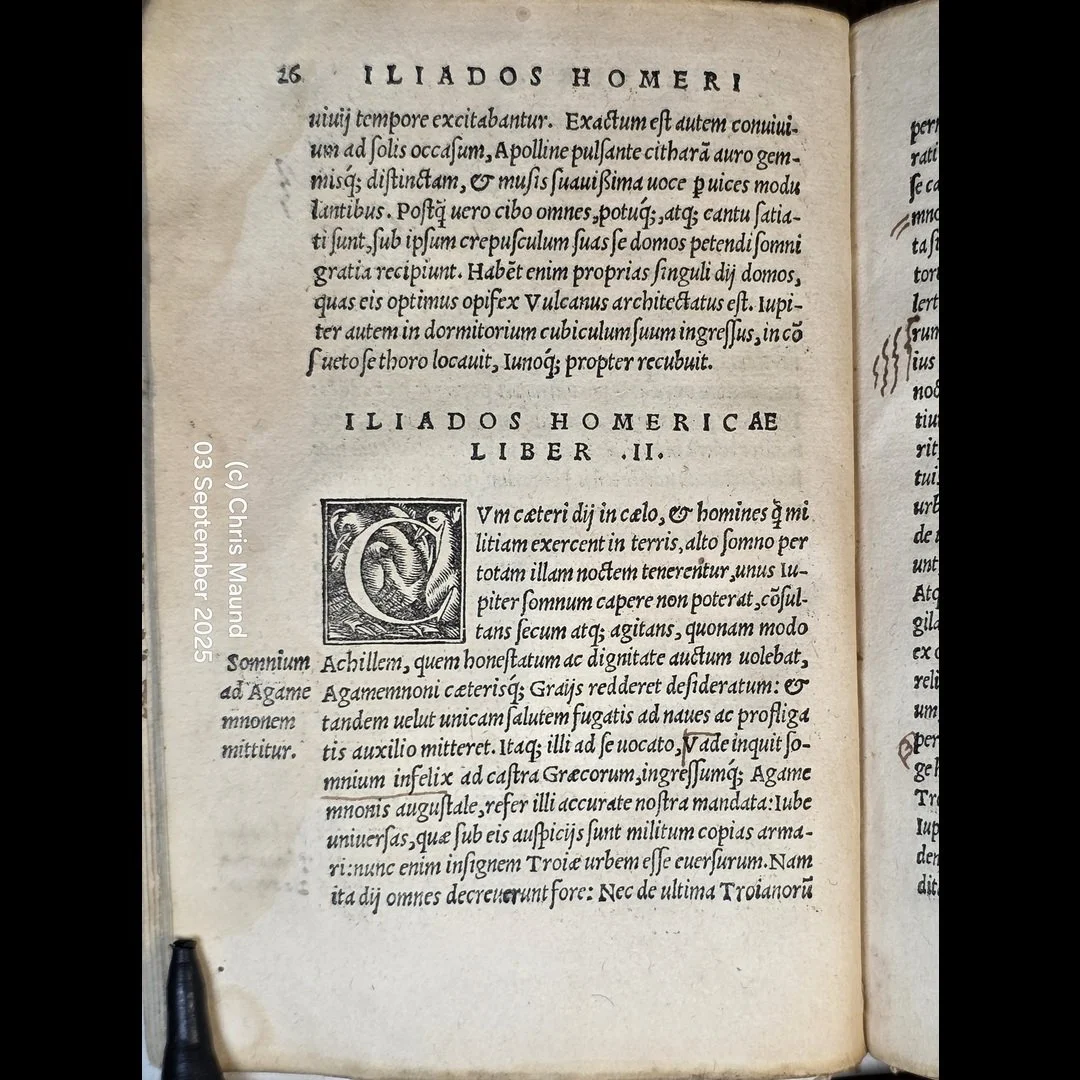 26 ILIADOS HOMERI
uiuij tempore excitabantur. Exactum est autem conuiui-
um ad solis occasum, Apolline pulsante citharā auro gem-
misq́; distinctam, & musis suauißima uoce ꝑ uices modu
lantibus. Postq̄ uero cibo omnes, potuq́;, atq; cantu satia-
ti sunt, sub ipsum crepusculum suas se domos petendi somni
gratia recipiunt. Habēt enim proprias singuli dij domos,
quas eis optimus opifex Vulcanus architectatus est. Iupi-
ter autem in dormitorium cubiculum suum ingressus, in cō
sueto se thoro locauit, Iunoq́; propter recubuit.
ILIADOS HOMERICAE
LIBER .II.
CVm cæteri dij in cælo, & homines q̄ mi
litiam exercent in terris, alto somno per
totam illam noctem tenerentur, unus Iu-
piter somnum capere non poterat, cōsul-
tans secum atq; agitans, quonam modo
Achillem, quem honestatum ac dignitate auctum uolebat,
Agamemnoni cæterisq́; Graijs redderet desideratum: &
tandem uelut unicam salutem fugatis ad naues ac profliga
tis auxilio mitteret. Itaq; illi ad se uocato, Vade inquit so-
mnium infelix ad castra Græcorum, ingressumq́; Agame
mnonis augustale, refer illi accurate nostra mandata: Iube
uniuersas, quæ sub eis auspicijs sunt militum copias arma-
ri: nunc enim insignem Troiæ urbem esse euersurum. Nam
ita dij omnes decreuerunt fore: Nec de ultima Troianorū
Somnium
ad Agame
mnonem
mittitur.
(c) Chris Maund
03 September 2025